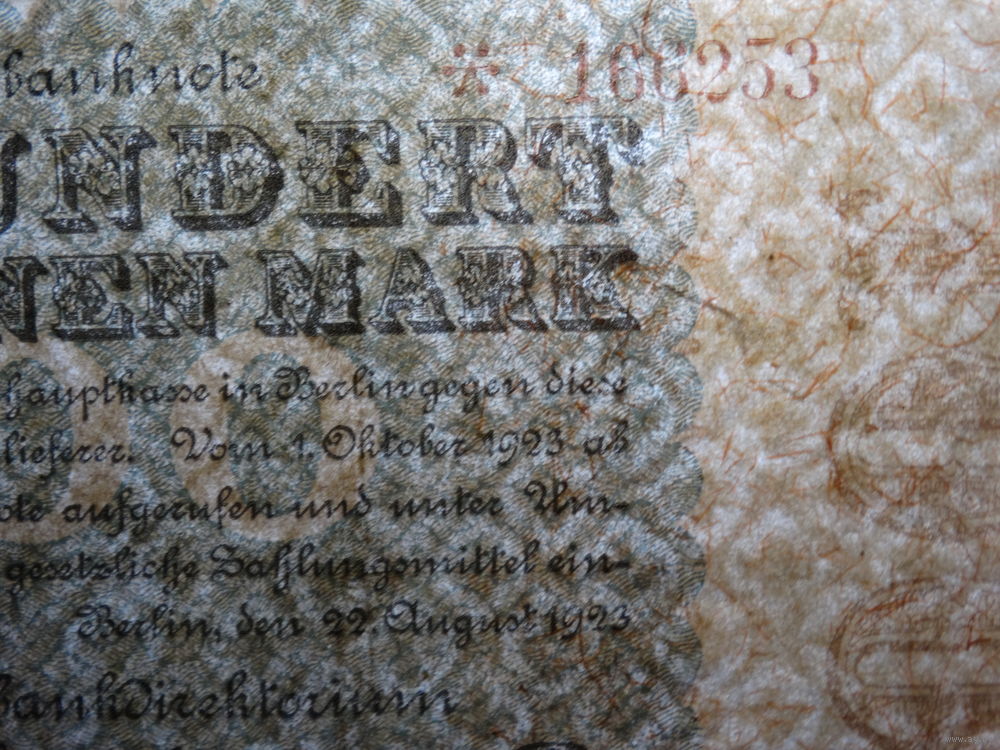 banknote * 166253
UNDERT
NEN MARK
hauptkasse in Berlin gegen diese
lieferer. Vom 1. Oktober 1923 ab
ote aufgerufen und unter Um-
gesetzliche Zahlungsmittel ein-
Berlin, den 22. August 1923
bankdirektorium